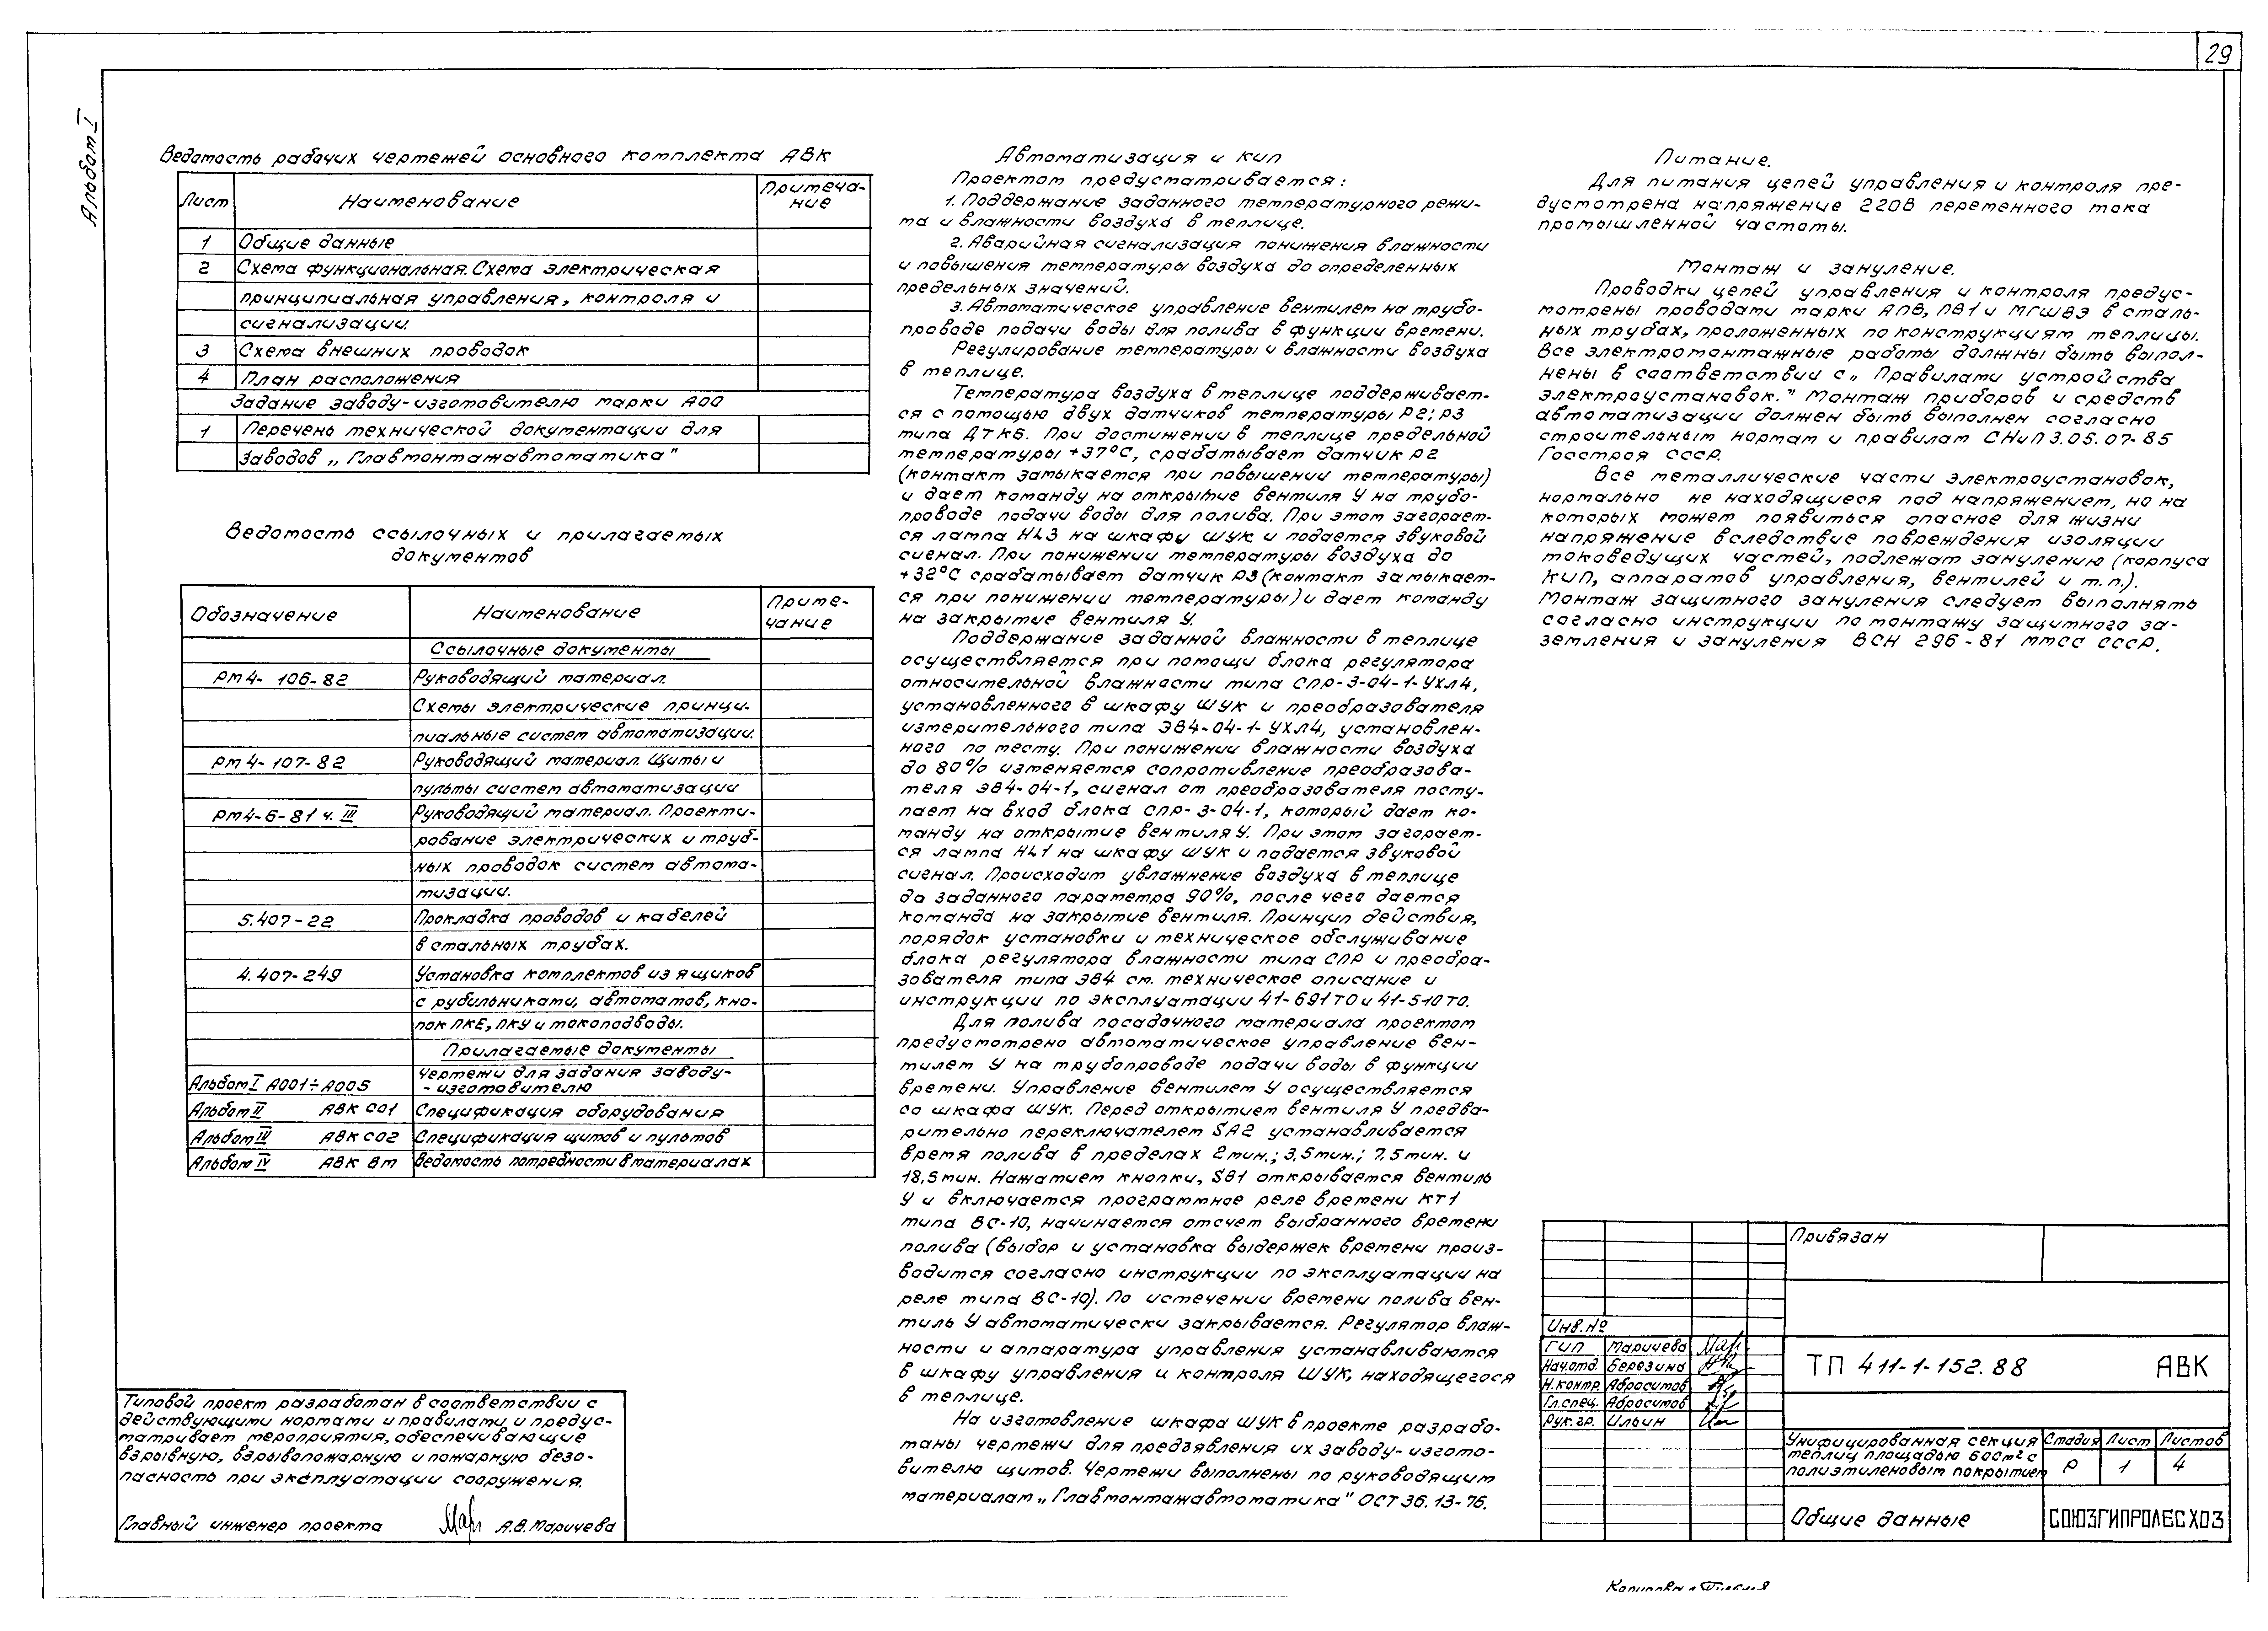 29
Альбом I
Ведомость рабочих чертежей основного комплекта АВК
Лист Наименование Примеча-
ние
1 Общие данные
2 Схема функциональная. Схема электрическая
принципиальная управления, контроля и
сигнализации.
3 Схема внешних проводок
4 План расположения
Задание заводу-изготовителю марки А00
1 Перечень технической документации для
заводов „Главмонтажавтоматика"
Ведомость ссылочных и прилагаемых
документов
Обозначение Наименование Приме-
чание
Ссылочные документы
РМ4-106-82 Руководящий материал.
Схемы электрические принци-
пиальные систем автоматизации.
РМ4-107-82 Руководящий материал. Щиты и
пульты систем автоматизации
РМ4-6-81 ч. III Руководящий материал. Проекти-
рование электрических и труб-
ных проводок систем автома-
тизации.
5.407-22 Прокладка проводов и кабелей
в стальных трубах.
4.407-249 Установка комплектов из ящиков
с рубильниками, автоматов, кно-
пок ПКЕ, ПКУ и токоподводы.
Прилагаемые документы
Альбом I А001÷А005 Чертежи для задания заводу-
-изготовителю
Альбом II АВК СО1 Спецификация оборудования
Альбом III АВК СО2 Спецификация щитов и пультов
Альбом IV АВК ВМ Ведомость потребности в материалах
Типовой проект разработан в соответствии с
действующими нормами и правилами и предус-
матривает мероприятия, обеспечивающие
взрывную, взрывопожарную и пожарную безо-
пасность при эксплуатации сооружения.
Главный инженер проекта А.В. Маричева
Автоматизация и КИП
Проектом предусматривается:
1. Поддержание заданного температурного режи-
ма и влажности воздуха в теплице.
2. Аварийная сигнализация понижения влажности
и повышения температуры воздуха до определенных
предельных значений.
3. Автоматическое управление вентилем на трубо-
проводе подачи воды для полива в функции времени.
Регулирование температуры и влажности воздуха
в теплице.
Температура воздуха в теплице поддерживает-
ся с помощью двух датчиков температуры Р2; Р3
типа ДТКБ. При достижении в теплице предельной
температуры +37°С, срабатывает датчик Р2
(контакт замыкается при повышении температуры)
и дает команду на открытие вентиля У на трубо-
проводе подачи воды для полива. При этом загорает-
ся лампа HL3 на шкафу ШУК и подается звуковой
сигнал. При понижении температуры воздуха до
+32°С срабатывает датчик Р3 (контакт замыкает-
ся при понижении температуры) и дает команду
на закрытие вентиля У.
Поддержание заданной влажности в теплице
осуществляется при помощи блока регулятора
относительной влажности типа СПР-3-04-1-УХЛ4,
установленного в шкафу ШУК и преобразователя
измерительного типа Э84-04-1-УХЛ4, установлен-
ного по месту. При понижении влажности воздуха
до 80% изменяется сопротивление преобразова-
теля Э84-04-1, сигнал от преобразователя посту-
пает на вход блока СПР-3-04-1, который дает ко-
манду на открытие вентиля У. При этом загорает-
ся лампа HL1 на шкафу ШУК и подается звуковой
сигнал. Происходит увлажнение воздуха в теплице
до заданного параметра 90%, после чего дается
команда на закрытие вентиля. Принцип действия,
порядок установки и техническое обслуживание
блока регулятора влажности типа СПР и преобра-
зователя типа Э84 см. техническое описание и
инструкции по эксплуатации 41-691ТО и 41-510ТО.
Для полива посадочного материала проектом
предусмотрено автоматическое управление вен-
тилем У на трубопроводе подачи воды в функции
времени. Управление вентилем У осуществляется
со шкафа ШУК. Перед открытием вентиля У предва-
рительно переключателем SA2 устанавливается
время полива в пределах 2мин.; 3,5мин.; 7,5мин. и
18,5мин. Нажатием кнопки, SB1 открывается вентиль
У и включается программное реле времени КТ1
типа ВС-10, начинается отсчет выбранного времени
полива (выбор и установка выдержек времени произ-
водится согласно инструкции по эксплуатации на
реле типа ВС-10). По истечении времени полива вен-
тиль У автоматически закрывается. Регулятор влаж-
ности и аппаратура управления устанавливаются
в шкафу управления и контроля ШУК, находящегося
в теплице.
На изготовление шкафа ШУК в проекте разрабо-
таны чертежи для предъявления их заводу-изгото-
вителю щитов. Чертежи выполнены по руководящим
материалам „Главмонтажавтоматика" ОСТ 36.13-76.
Питание.
Для питания цепей управления и контроля пре-
дусмотрена напряжение 220В переменного тока
промышленной частоты.
Монтаж и зануление.
Проводки цепей управления и контроля предус-
мотрены проводами марки АПВ, ПВ1 и МГШВЭ в сталь-
ных трубах, проложенных по конструкциям теплицы.
Все электромонтажные работы должны быть выпол-
нены в соответствии с „Правилами устройства
электроустановок." Монтаж приборов и средств
автоматизации должен быть выполнен согласно
строительным нормам и правилам СНиП 3.05.07-85
Госстроя СССР.
Все металлические части электроустановок,
нормально не находящиеся под напряжением, но на
которых может появиться опасное для жизни
напряжение вследствие повреждения изоляции
токоведущих частей, подлежат занулению (корпуса
КИП, аппаратов управления, вентилей и т.п.).
Монтаж защитного зануления следует выполнять
согласно инструкции по монтажу защитного за-
земления и зануления ВСН 296-81 ММСС СССР.
Привязан
Инв.№
ГИП Маричева
Нач.отд. Березина
Н.контр. Абросимов
Гл.спец. Абросимов
Рук.гр. Ильин
ТП 411-1-152.88 АВК
Унифицированная секция
теплиц площадью 600м² с
полиэтиленовым покрытием
Стадия Лист Листов
Р 1 4
Общие данные
СОЮЗГИПРОЛЕСХОЗ